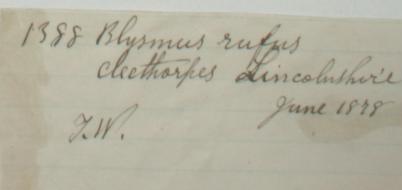 1388 Blysmus rufus
Cleethorpes Lincolnshire
June 1878
J.W.